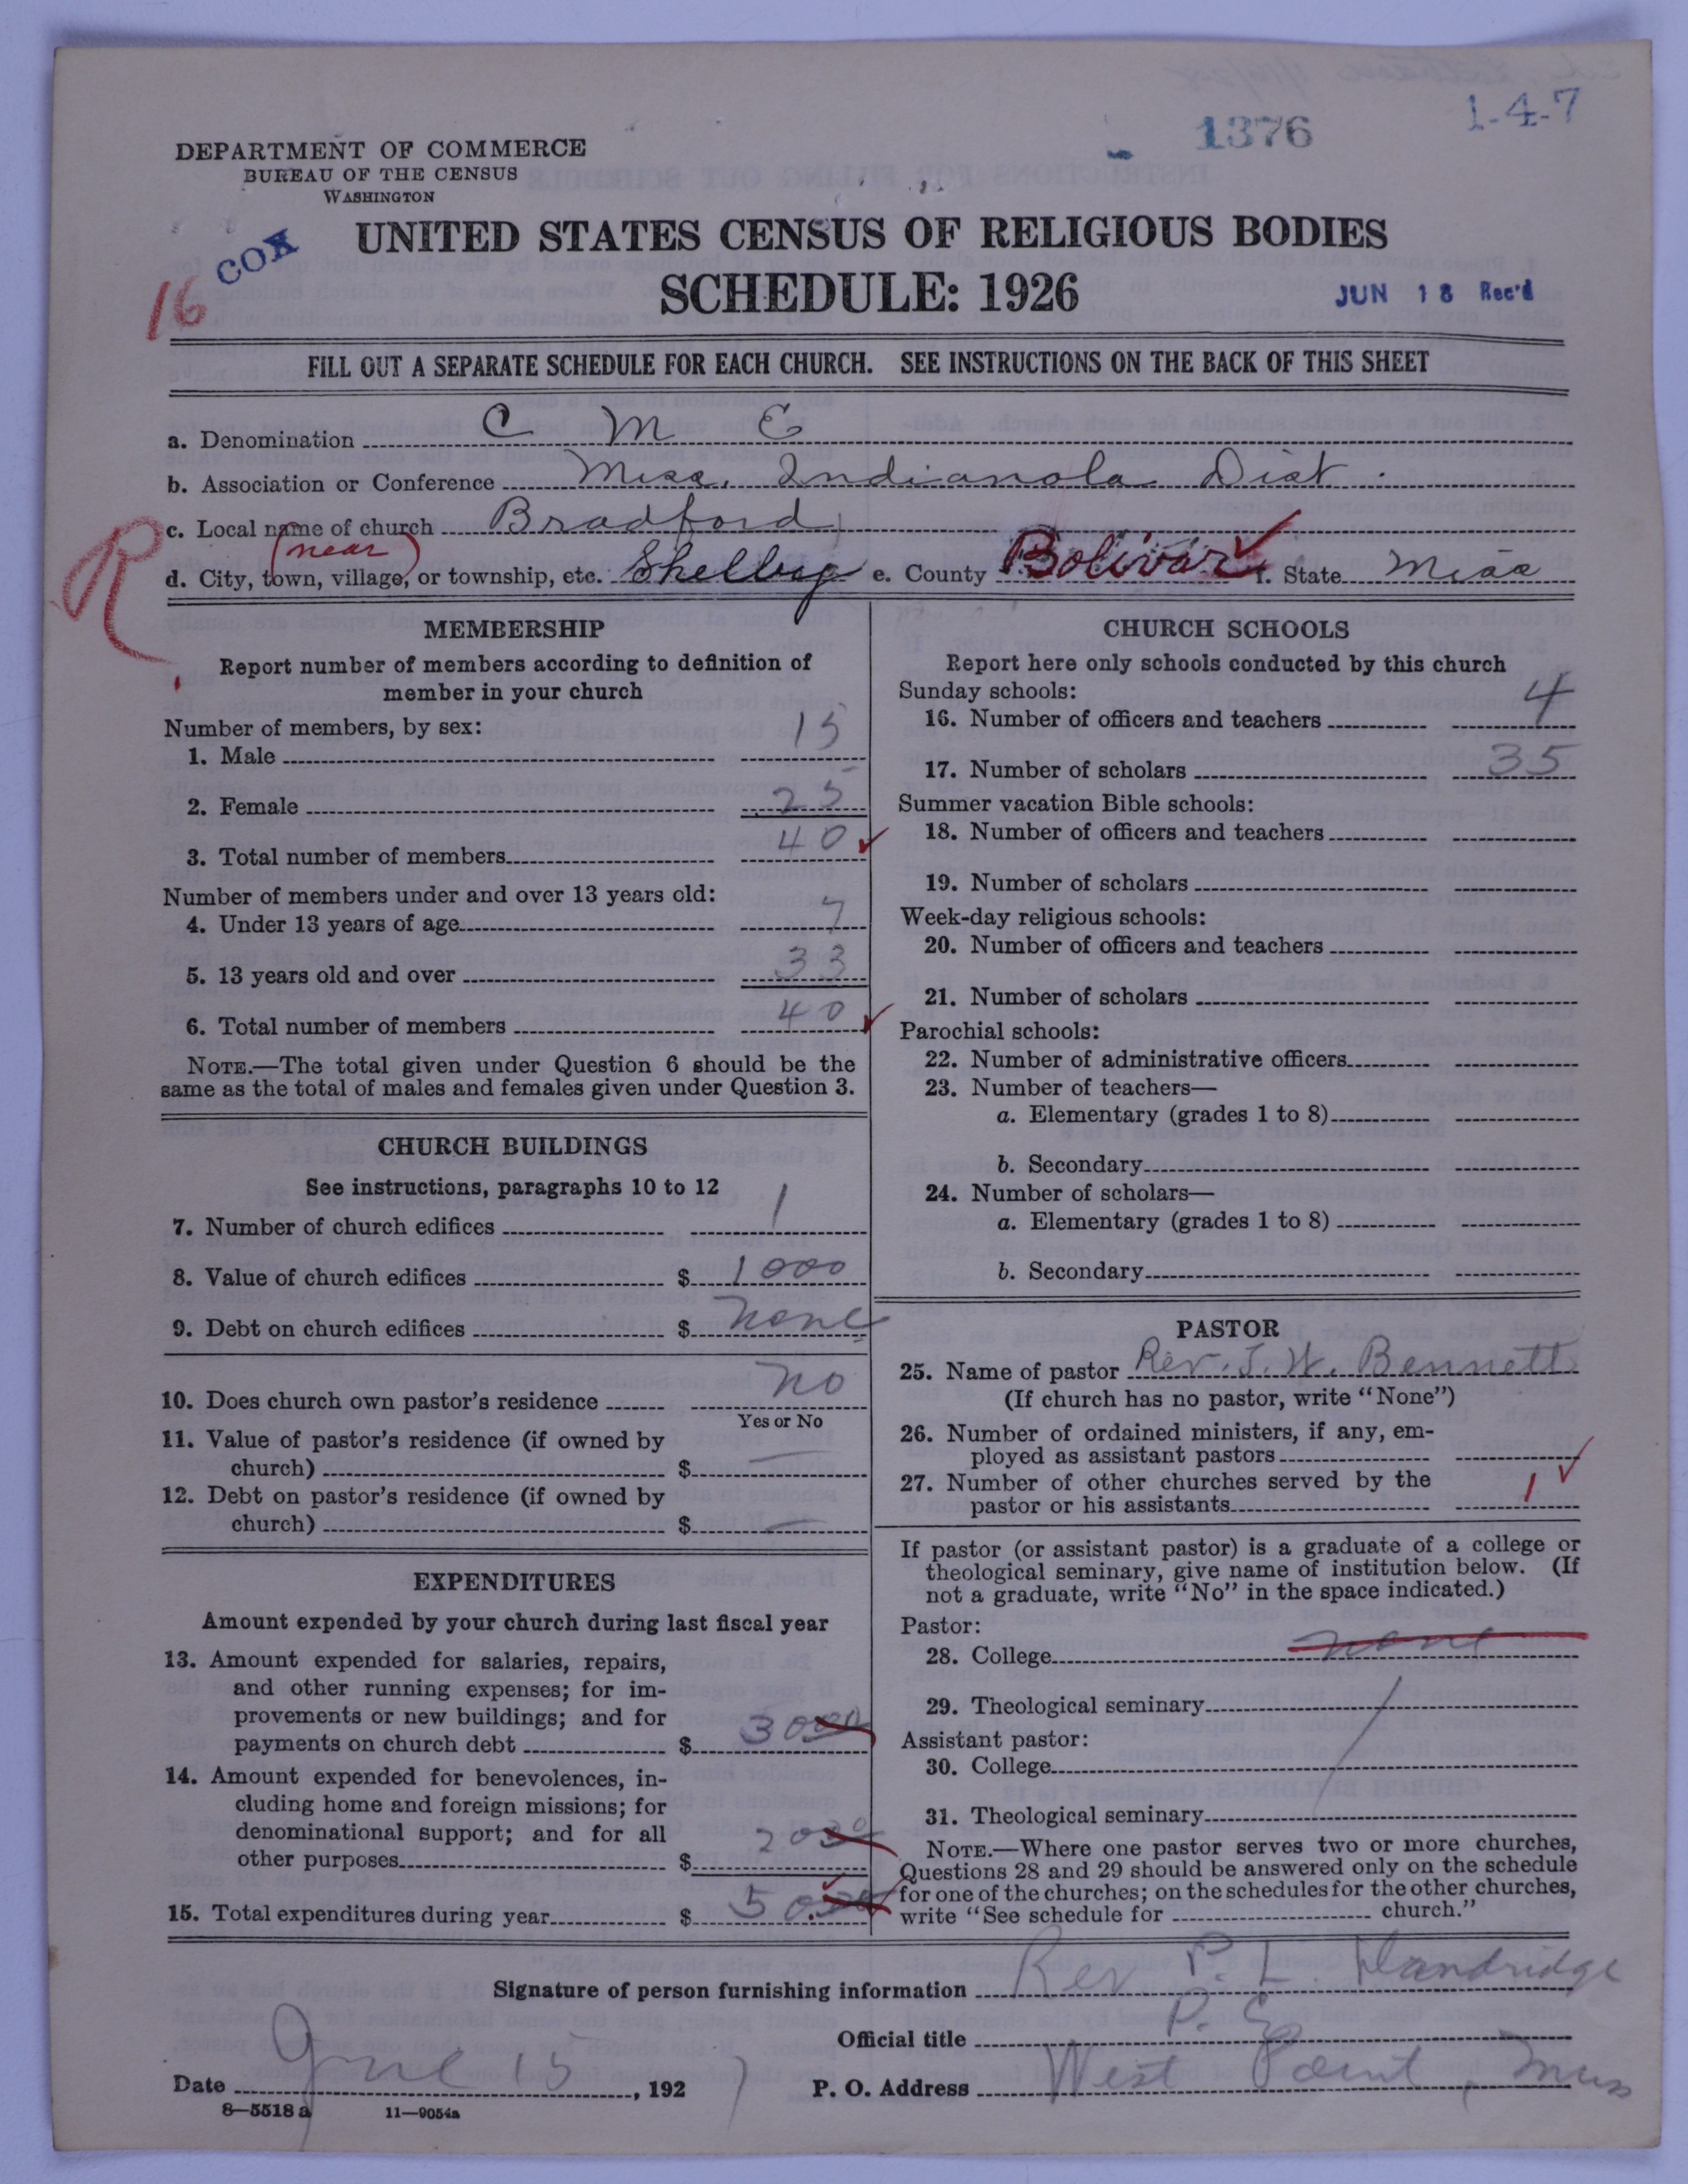 1-4-7
1376
DEPARTMENT OF COMMERCE
BUREAU OF THE CENSUS
WASHINGTON
COX
16
UNITED STATES CENSUS OF RELIGIOUS BODIES
SCHEDULE: 1926
JUN 18 Rec'd
FILL OUT A SEPARATE SCHEDULE FOR EACH CHURCH. SEE INSTRUCTIONS ON THE BACK OF THIS SHEET
a. Denomination C M E
b. Association or Conference Miss. Indianola Dist.
c. Local name of church Bradford
R
(near)
d. City, town, village, or township, etc. Shelby e. County Bolivar f. State Miss
MEMBERSHIP
Report number of members according to definition of
member in your church
Number of members, by sex:
1. Male 15
2. Female 25
3. Total number of members 40
Number of members under and over 13 years old:
4. Under 13 years of age 7
5. 13 years old and over 33
6. Total number of members 40
NOTE.—The total given under Question 6 should be the
same as the total of males and females given under Question 3.
CHURCH BUILDINGS
See instructions, paragraphs 10 to 12
7. Number of church edifices 1
8. Value of church edifices $ 1000
9. Debt on church edifices $ none
10. Does church own pastor's residence no
Yes or No
11. Value of pastor's residence (if owned by
church) $ —
12. Debt on pastor's residence (if owned by
church) $ —
EXPENDITURES
Amount expended by your church during last fiscal year
13. Amount expended for salaries, repairs,
and other running expenses; for im-
provements or new buildings; and for
payments on church debt $ 30 00
14. Amount expended for benevolences, in-
cluding home and foreign missions; for
denominational support; and for all
other purposes $ 20 00
15. Total expenditures during year $ 50.00
CHURCH SCHOOLS
Report here only schools conducted by this church
Sunday schools:
16. Number of officers and teachers 4
17. Number of scholars 35
Summer vacation Bible schools:
18. Number of officers and teachers
19. Number of scholars
Week-day religious schools:
20. Number of officers and teachers
21. Number of scholars
Parochial schools:
22. Number of administrative officers
23. Number of teachers—
a. Elementary (grades 1 to 8)
b. Secondary
24. Number of scholars—
a. Elementary (grades 1 to 8)
b. Secondary
PASTOR
25. Name of pastor Rev. J. W. Bennett
(If church has no pastor, write "None")
26. Number of ordained ministers, if any, em-
ployed as assistant pastors
27. Number of other churches served by the
pastor or his assistants 1
If pastor (or assistant pastor) is a graduate of a college or
theological seminary, give name of institution below. (If
not a graduate, write "No" in the space indicated.)
Pastor:
28. College none
29. Theological seminary
Assistant pastor:
30. College
31. Theological seminary
NOTE.—Where one pastor serves two or more churches,
Questions 28 and 29 should be answered only on the schedule
for one of the churches; on the schedules for the other churches,
write "See schedule for church."
Signature of person furnishing information Rev. P. L. Dandridge
Official title P. E.
Date June 15, 1927 P. O. Address West Point, Miss
8—5518 a 11—9054a